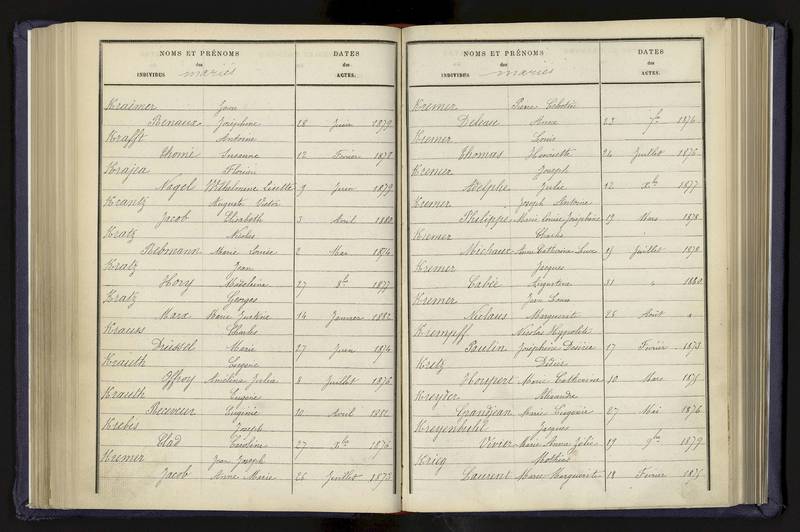 NOMS ET PRÉNOMS DATES
des des
INDIVIDUS mariés ACTES.
Kraemer Jean
Renaux Joséphine 28 Juin 1879
Krafft Antoine
Thomé Susanne 12 Février 1878
Krajea Florian
Nagel Wilhelmine Lisette 9 Juin 1879
Krantz Auguste Victor
Jacob Elisabeth 3 Avril 1880
Kratz Nicolas
Rebmann Marie Louise 2 Mai 1874
Kratz Jean
Hory Madeleine 27 8bre 1877
Kratz Georges
Marx Marie Justine 14 Janvier 1882
Krauss Charles
Drussel Marie 27 Juin 1874
Krauth Eugène
Offroy Amélina Julia 8 Juillet 1876
Krauth Eugène
Receveur Eugénie 10 Avril 1882
Krebis Joseph
Clad Caroline 27 Xbre 1876
Kremer Jean Joseph
Jacob Anne Marie 26 Juillet 1873
NOMS ET PRÉNOMS DATES
des des
INDIVIDUS mariés ACTES.
Kremer Pierre
Anna 23 7bre 1874
Kremer Louis
Thomas Henriette 24 Juillet 1876
Kremer Joseph
Adelphe Julie 12 Xbre 1877
Kremer Joseph Antoine
Philippe Marie Louise Joséphine 19 Mars 1878
Kremer Charles
Michaux Anne Catherine 19 Juillet 1878
Kremer Jacques
Cabié Augustine 31 " 1880
Kremer Jean Louis
Niclaus Marguerite 28 Août "
Krempff Nicolas Hippolite
Paulin Joséphine Désirée 17 Février 1873
Kretz Didier
Houpert Marie Catherine 10 Mars 1875
Kreyder Alexandre
Grandjean Marie Eugénie 27 Mai 1876
Kreyenbühl Jacques
Vivier Marie Anna Julie 19 9bre 1879
Krieg Mathias
Laurent Marie Marguerite 18 Février 1875